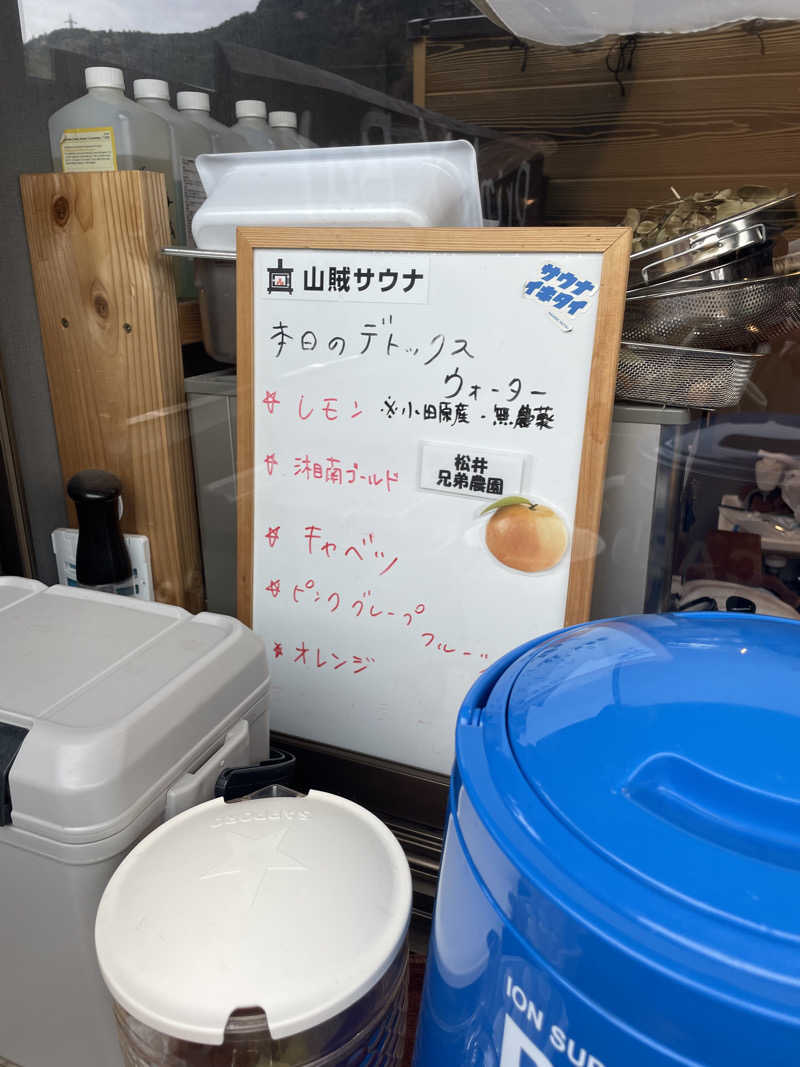 山賊サウナ
サウナ
イキタイ
本日のデトックス
ウォーター
☆レモン ※小田原産・無農薬
☆湘南ゴールド
松井
兄弟農園
☆キャベツ
☆ピンクグレープ
フルーツ
☆オレンジ
SAPPORO
ION SUP